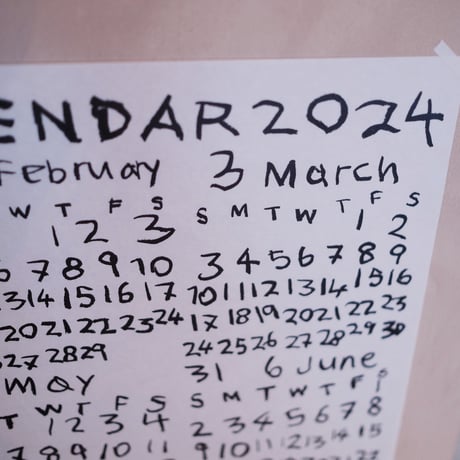 ENDAR 2024
February 3 March
W T F S S M T W T F S
1 2 3 1 2
7 8 9 10 3 4 5 6 7 8 9
13 14 15 16 17 10 11 12 13 14 15 16
20 21 22 23 24 17 18 19 20 21 22 23
27 28 29 24 25 26 27 28 29 30
31
May 6 June
T W T F S S M T W T F S
1
1 2 3 4 2 3 4 5 6 7 8
8 9 10 11 9 10 11 12 13 14 15